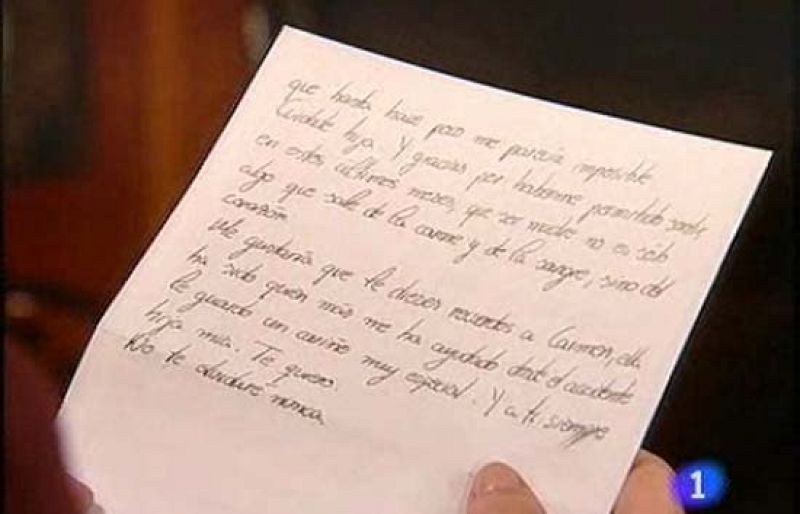 que hasta hace poco me parecía imposible.
Cuídate hija. Y gracias por haberme permitido sentir,
en estos últimos meses, que ser madre no es solo
algo que sale de la carne y de la sangre, sino del
corazón.
Me gustaría que le dieses recuerdos a Carmen, ella
ha sido quien más me ha ayudado desde el accidente
le guardo un cariño muy especial. Y a ti, siempre
hija mía. Te quiero.
No te olvidaré nunca.
1